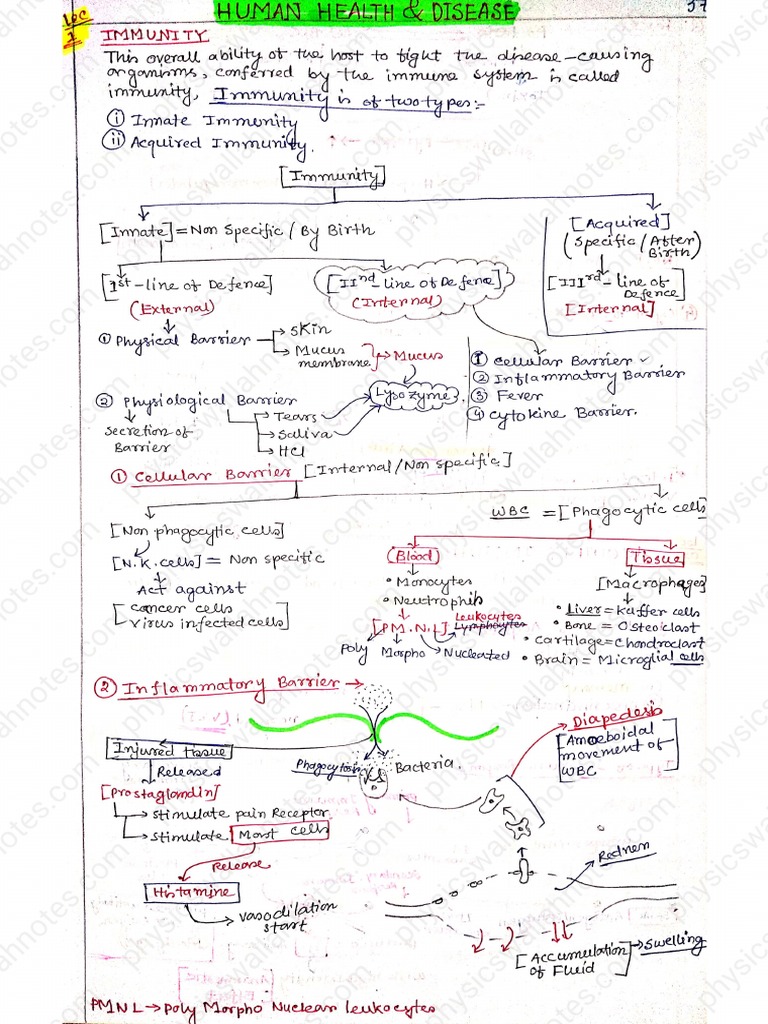 HUMAN HEALTH & DISEASE
37
LEC
1
IMMUNITY
This overall ability of the host to fight the disease-causing
organisms, conferred by the immune system is called
immunity. Immunity is of two types:-
(i) Innate Immunity
(ii) Acquired Immunity.
[Immunity]
[Innate] = Non Specific / By Birth
[Acquired]
(Specific / After
Birth)
[Ist-line of Defence]
(External)
[IInd Line of Defence]
(Internal)
[IIIrd- line of
Defence]
[Internal]
① Physical Barrier
Skin
Mucus
membrane
Mucus
Lysozyme
② Physiological Barrier
Secretion of
Barrier
Tears
Saliva
HCl
① Cellular Barrier
② Inflammatory Barrier
③ Fever
④ Cytokine Barrier.
① Cellular Barrier [Internal/Non specific]
[Non phagocytic cells]
[N.K. cells] = Non specific
Act against
[cancer cells
virus infected cells]
WBC = [Phagocytic cells]
Blood
• Monocytes
• Neutrophils
[P.M.N.L]
Leukocytes
Lymphocytes
Poly Morpho Nucleated
Tissue
[Macrophages]
• Liver = Kuffer cells
• Bone = Osteoclast
• Cartilage = Chondroclast
• Brain = Microglial cells
② Inflammatory Barrier →
Injured tissue
Released
[Prostaglandin]
→ stimulate pain Receptor
→ stimulate Mast cells
Release
Histamine
→ vasodilation
start
Phagocytosis
Bacteria
Diapedesis
[Amoeboidal
movement of
WBC]
Redness
[Accumulation
of Fluid] → Swelling
PMNL → Poly Morpho Nuclear leukocytes
physicswallahnotes.com